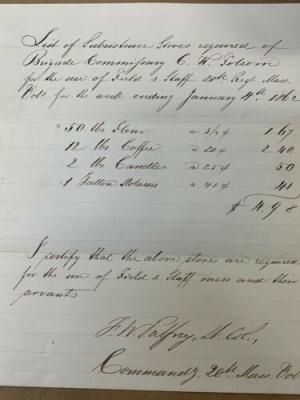 List of Subsistence Stores required of
Brigade Commissary C. W. Folsom
for the use of Field & Staff 20th Regt. Mass.
Vols for the week ending January 4th 1862
50 lbs Flour a 3⅓ ¢ 1 67
12 lbs Coffee a 20 ¢ 2 40
2 lbs Candles a 25 ¢ 50
1 Gallon Molasses a 41 ¢ 41
$ 4.98
I certify that the above stores are required
for the use of Field & Staff mess and their
servants
F. W. Palfrey, Lt. Col.,
Commandg. 20th Mass. Vol